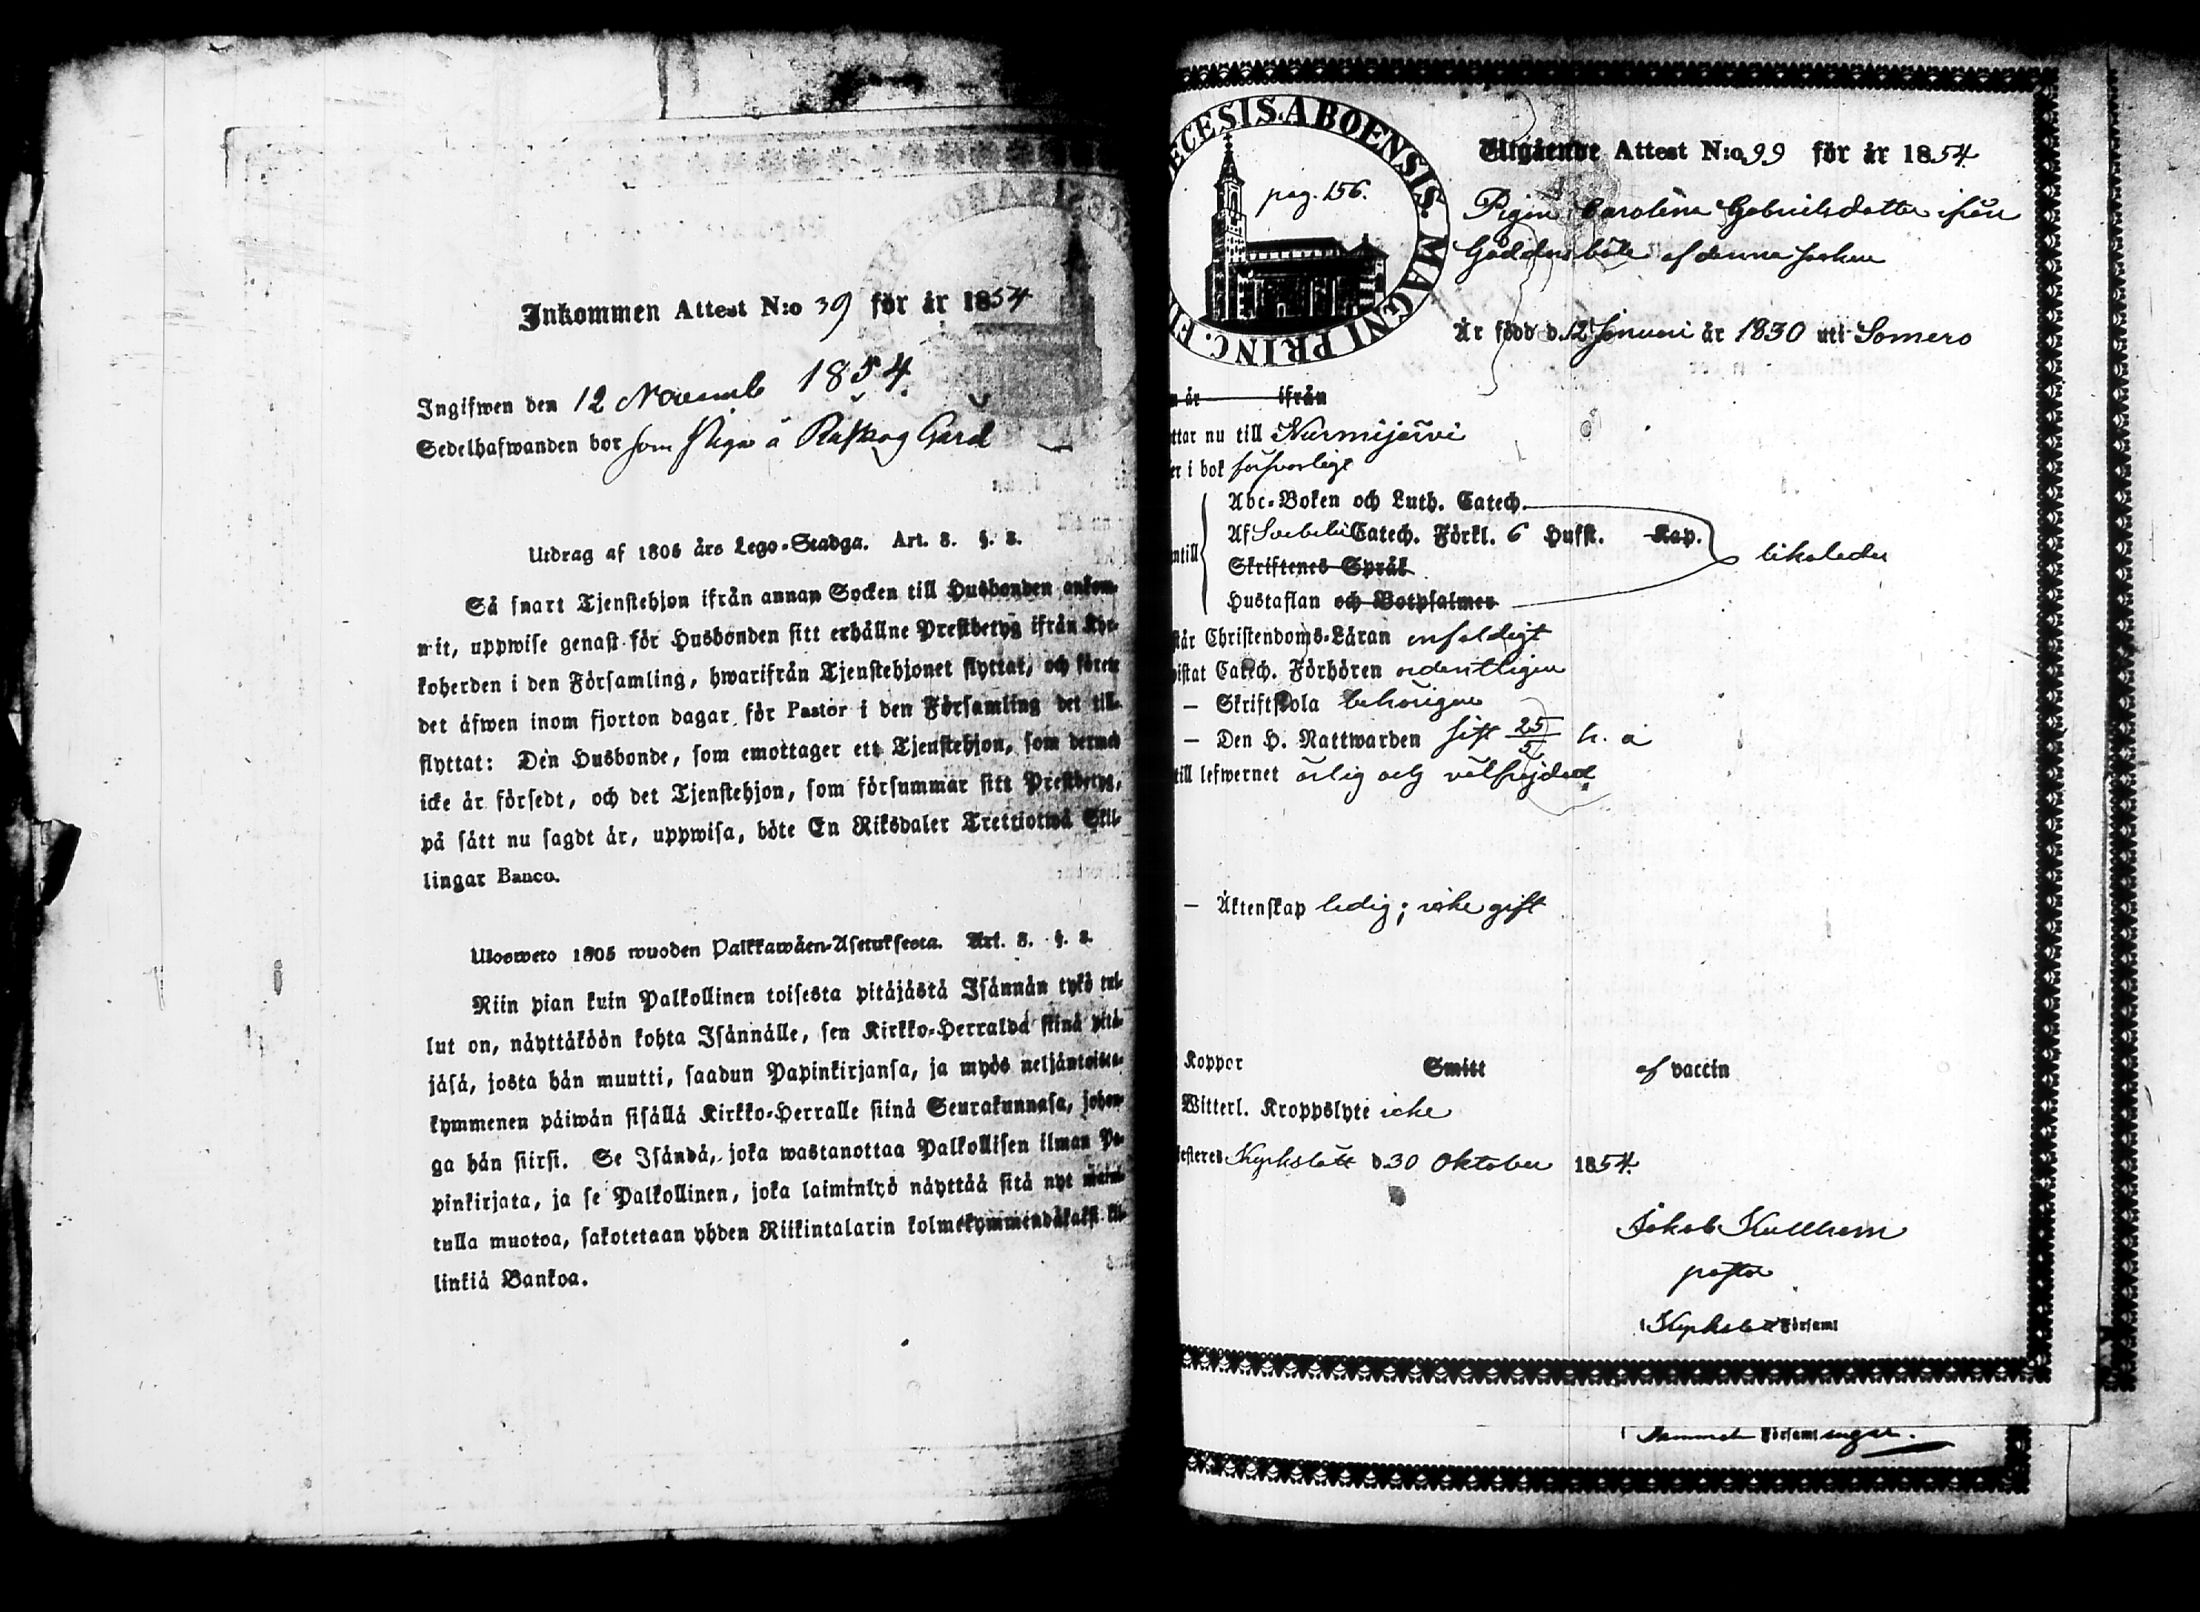 Inkommen Attest N:o 39 för år 1854
Ingifwen den 12 Novemb 1854.
Sedelhafwanden bor som Piga å Råskog Gård
Utdrag af 1805 års Lego-Stadga. Art. 8. §. 2.
Så snart Tjenstehjon ifrån annan Socken till Husbonden ankom-
mit, uppwise genast för Husbonden sitt erhållne Prestbetyg ifrån Kyr-
koherden i den Församling, hwarifrån Tjenstehjonet flyttat, och förete
det äfwen inom fjorton dagar för Pastor i den Församling det till-
flyttat: Den Husbonde, som emottager ett Tjenstehjon, som dermed
icke är försedt, och det Tjenstehjon, som försummar sitt Prestbetyg,
på sätt nu sagdt är, uppwisa, böte En Riksdaler Trettiotwå Skil-
lingar Banco.
Ulosweto 1805 wuoden Palkkawäen-Asetuksesta. Art. 8. §. 2.
Niin pian kuin Palkollinen toisesta pitäjästä Isännän tykö tul-
lut on, näyttäköön kohta Isännälle, sen Kirkko-Herralda siinä pitä-
jäsä, josta hän muutti, saadun Papinkirjansa, ja myös neljäntoista-
kymmenen päiwän sisällä Kirkko-Herralle siinä Seurakunnasa, johon-
ga hän siirsi. Se Isändä, joka wastanottaa Palkollisen ilman Pa-
pinkirjata, ja se Palkollinen, joka laiminlyö näyttää sitä nyt
tulla muotoa, sakotetaan yhden Riikintalarin kolmekymmendäkaksi kil-
linkiä Bankoa.
ECESIS ABOENSIS. MAGNI PRINC. FI
pag. 156.
Utgående Attest N:o 99 för år 1854.
Pigan Carolina Gabrielsdotter ifrån
Gäddersböle af denna socken
Är född d. 12 Januari år 1830 uti Somero
n år ifrån
ttar nu till Nurmijärvi
er i bok försvarligt
Abc-Boken och Luth. Catech.
ntill Af Svebelii Catech. Förkl. 6 Hufst. Kap. likaledes
Skriftenes Språk
Hustaflan och Botpsalmer
står Christendoms-Läran enfaldigt
istat Catech. Förhören ordentligen
— Skriftskola behörigen
— Den H. Nattwarden sist 25/5 h. a
till lefwernet ärlig och välfrejdad
— Äktenskap ledig; icke gift
Koppor Smitt af vaccin
Witterl. Kroppslyte icke
esteres Kyrkslätt d. 30 Oktober 1854.
Jakob Kullhem
pastor
i Kyrkslätt Församl
Församlingar.